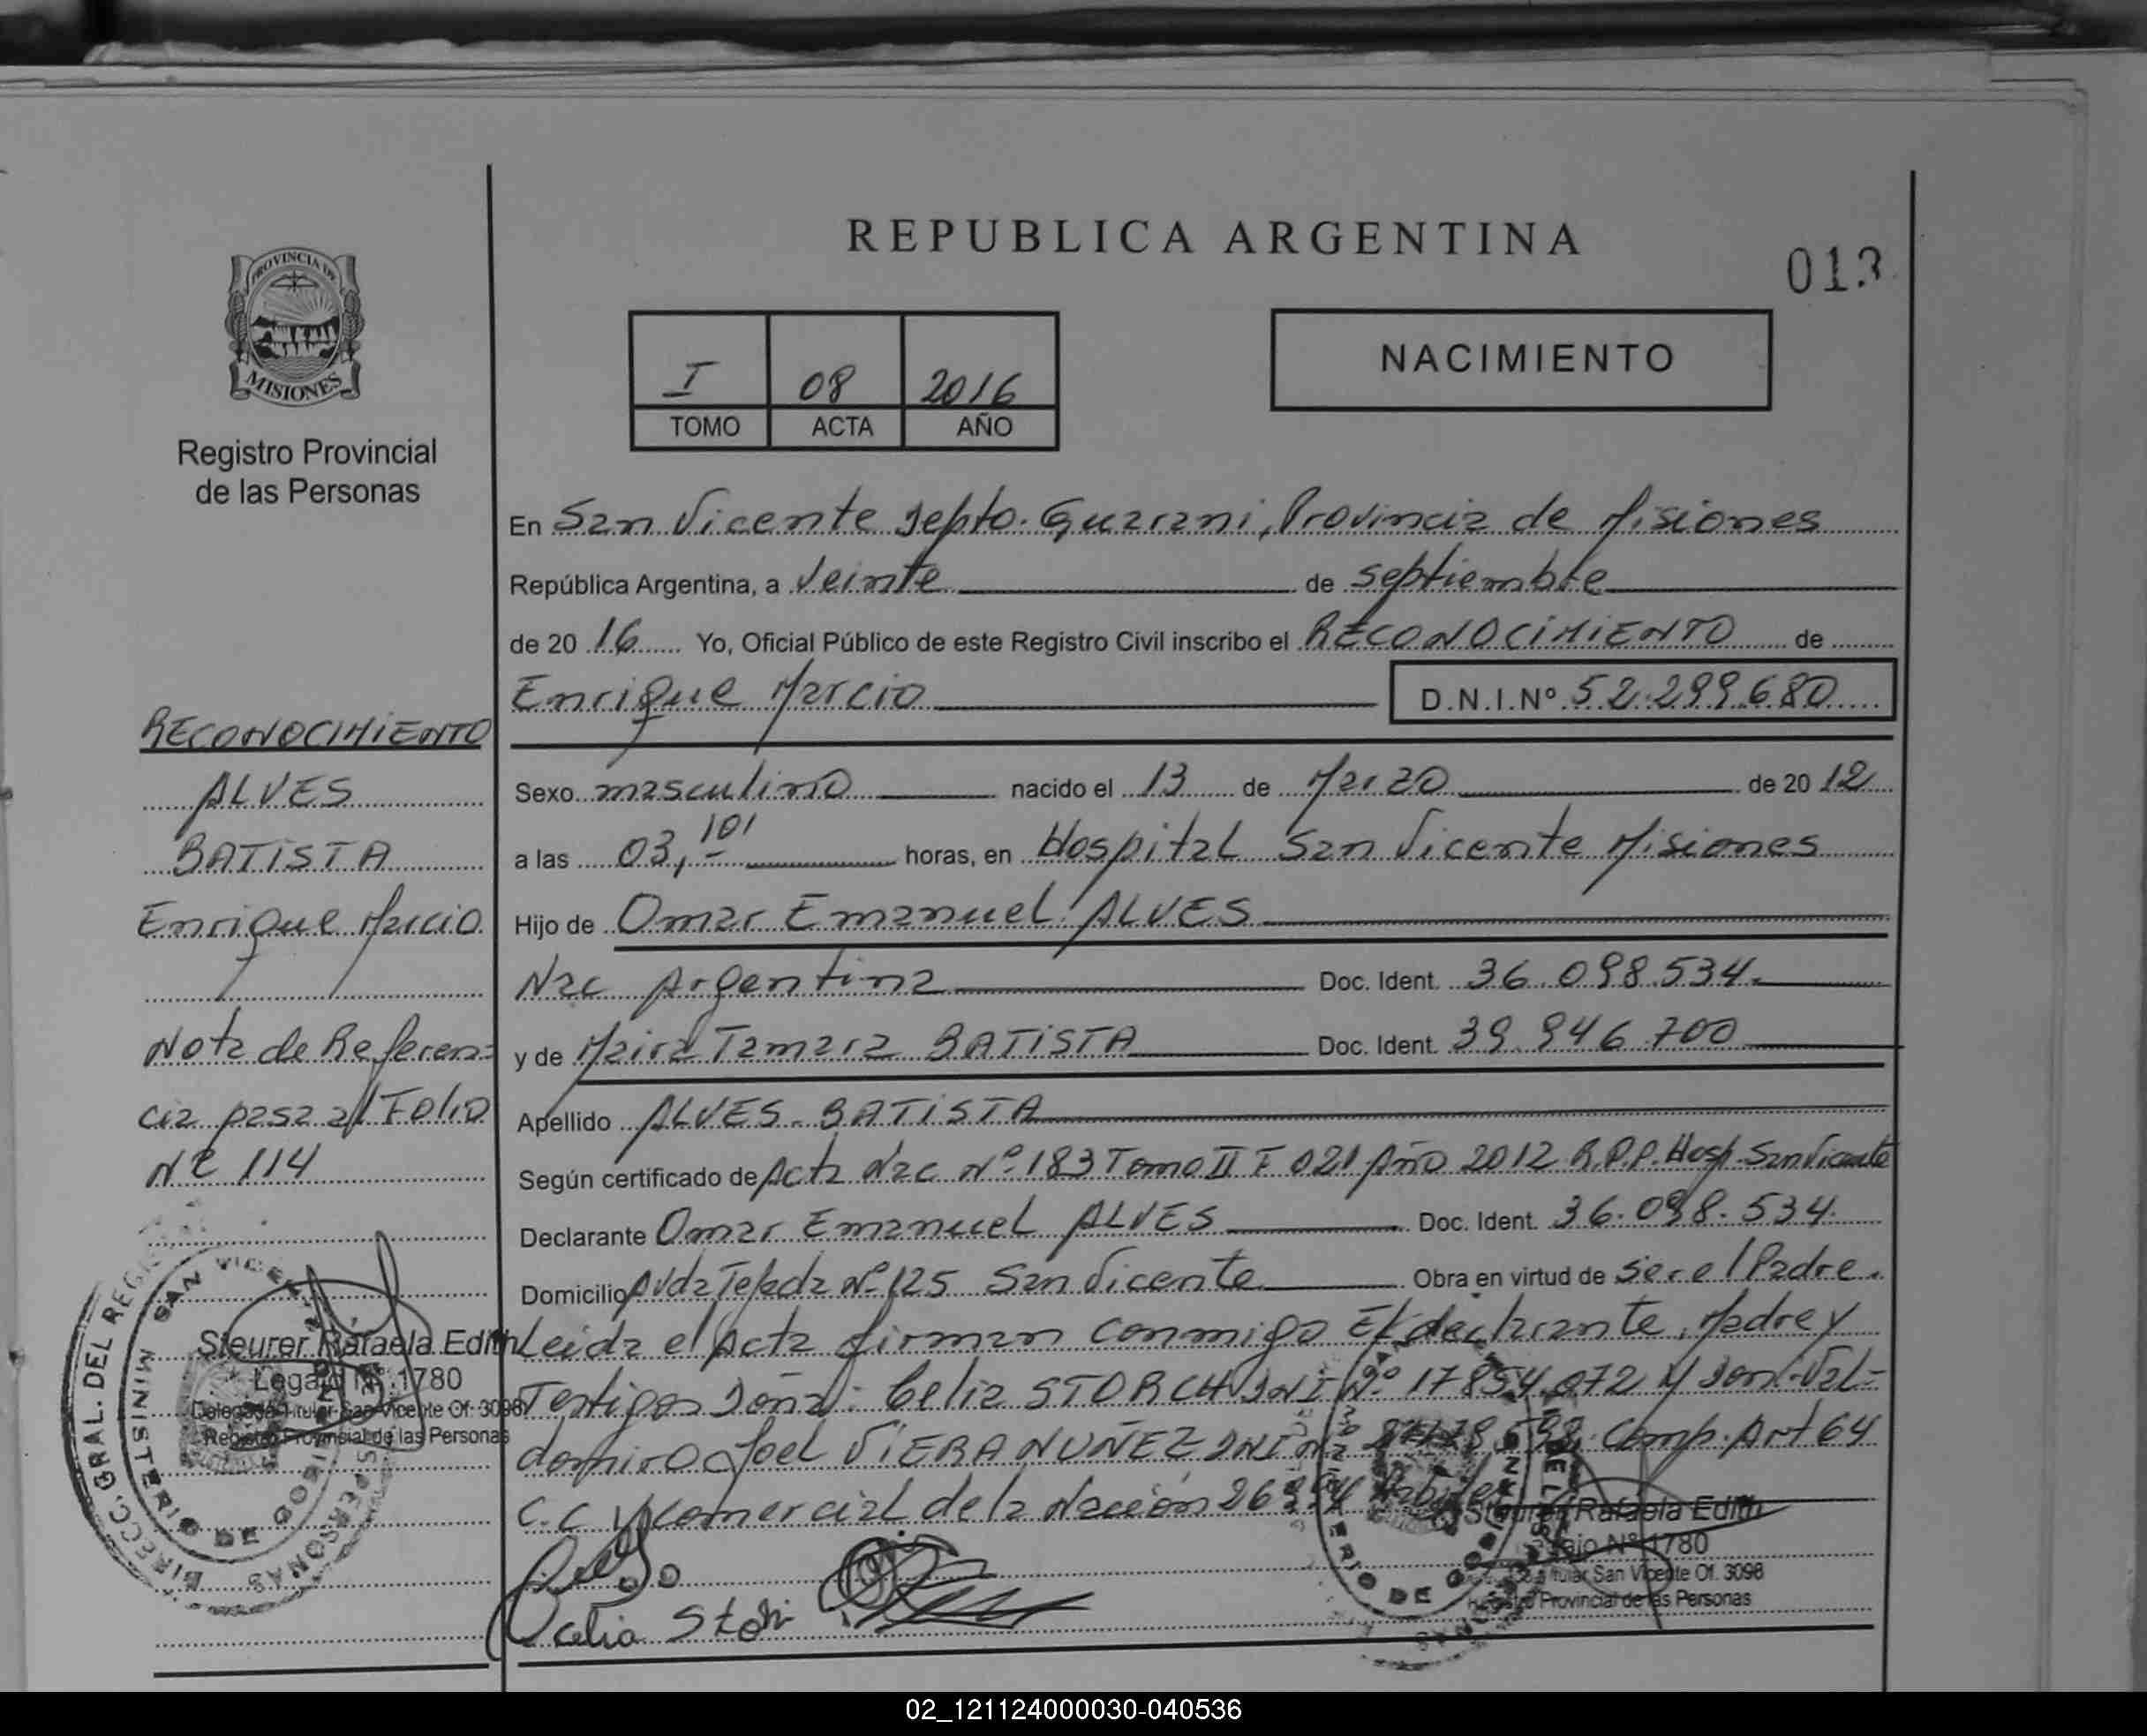 REPUBLICA ARGENTINA
013
PROVINCIA DE
MISIONES
Registro Provincial
de las Personas
I 08 2016
TOMO ACTA AÑO
NACIMIENTO
En San Vicente Depto. Guarani, Provincia de Misiones
República Argentina, a Veinte de septiembre
de 20 16 Yo, Oficial Público de este Registro Civil inscribo el RECONOCIMIENTO de
Enrique Marcio D.N.I.Nº 52.299.680
Sexo masculino nacido el 13 de Marzo de 20 12
a las 03,10' horas, en Hospital San Vicente Misiones
Hijo de Omar Emanuel ALVES
Nac Argentina Doc. Ident. 36.098.534.
y de Maira Tamara BATISTA Doc. Ident. 39.946.700
Apellido ALVES-BATISTA
Según certificado de Acta Nac Nº 183 Tomo II F 021 Año 2012 R.P.P. Hosp. San Vicente
Declarante Omar Emanuel ALVES Doc. Ident. 36.098.534.
Domicilio Avda Tejada Nº 125 San Vicente Obra en virtud de ser el Padre.
Leida el Acta firman conmigo El declarante, Madre y
Testigos Doña: Celia STORCH DNI Nº 17854.072 y Don: Val-
domiro Joel VIERA NUÑEZ DNI Comp. Art 64
C.C y Comercial de la Nación 26994
Celia
RECONOCIMIENTO
ALVES
BATISTA
Enrique Marcio
Nota de Referen=
cia pasa al Folio
Nº 114
DIRECC. GRAL. DEL REG
PERSONAS
SAN VICENTE
MINISTERIO DE GOB
Steurer Rafaela Edith
Legajo Nº 1780
Delegada Titular San Vicente Of. 3098
Registro Provincial de las Personas
Steurer Rafaela Edith
Legajo Nº 1780
Titular San Vicente Of. 3098
Registro Provincial de las Personas
02_121124000030-040536